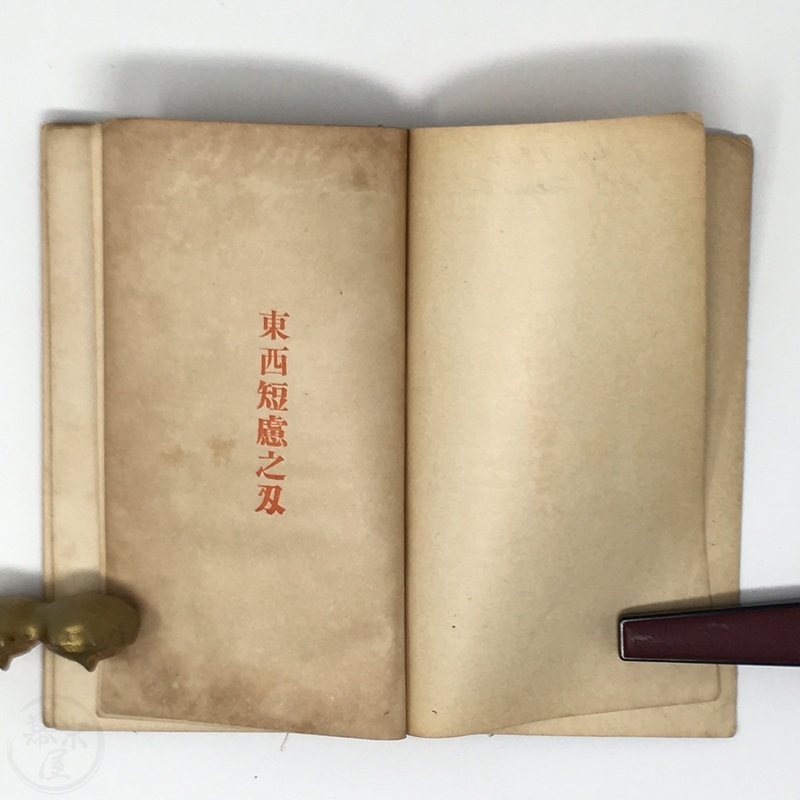 東西短慮之刄